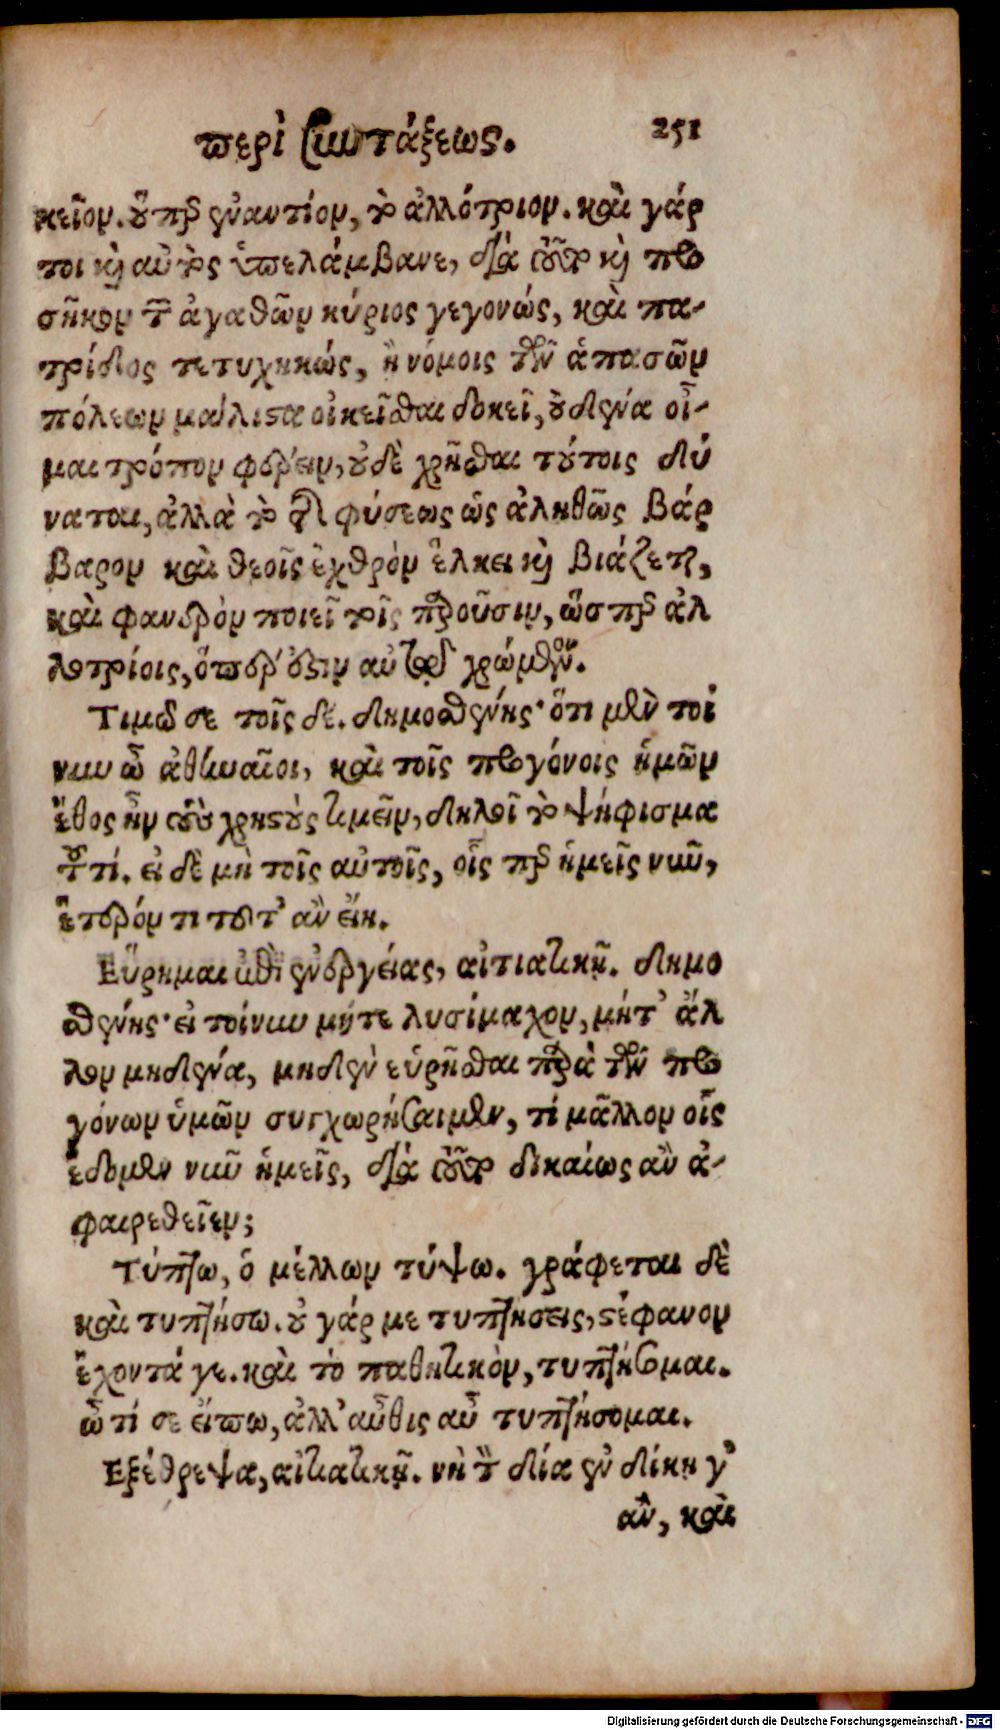 περὶ συντάξεως. 251
κεῖον. οὗπερ ἐναντίον, τὸ ἀλλότριον. καὶ γάρ
τοι καὶ αὐτὸς ὑπελάμβανε, διὰ τοῦτο καὶ προ
σῆκον τῶν ἀγαθῶν κύριος γεγονώς, καὶ πα-
τρίδος τετυχηκώς, ἣ νόμοις τῶν ἁπασῶν
πόλεων μάλιστα οἰκεῖσθαι δοκεῖ, οὐδένα οἶ-
μαι τρόπον φέρειν, οὐδὲ χρῆσθαι τούτοις δύ
ναται, ἀλλὰ τὸ τῆς φύσεως ὡς ἀληθῶς βάρ
βαρον καὶ θεοῖς ἐχθρὸν ἕλκει καὶ βιάζεται,
καὶ φανερὸν ποιεῖ τοῖς παροῦσιν, ὥσπερ ἀλ
λοτρίοις, ὅπερ ἔστιν αὐτὸν χρώμενον.
Τιμῶ σε τοῖς δέ. Δημοσθένης· ὅτι μὲν τοί
νυν ὦ ἀθηναῖοι, καὶ τοῖς προγόνοις ἡμῶν
ἔθος ἦν τοὺς χρηστοὺς τιμᾶν, δηλοῖ τὸ ψήφισμα
τουτί. εἰ δὲ μὴ τοῖς αὐτοῖς, οἷς περ ἡμεῖς νῦν,
ἕτερόν τι τοῦτ' ἂν εἴη.
Εὕρημαι ἐπὶ ἐνεργείας, αἰτιατικῇ. Δημο
σθένης· εἰ τοίνυν μήτε λυσίμαχον, μήτ' ἄλ
λον μηδένα, μηδὲν εὑρῆσθαι παρὰ τῶν προ
γόνων ὑμῶν συγχωρήσαιμεν, τί μᾶλλον οἷς
ἔδομεν νῦν ἡμεῖς, διὰ τοῦτο δικαίως ἂν ἀ-
φαιρεθεῖεν;
Τύπτω, ὁ μέλλων τύψω. γράφεται δὲ
καὶ τυπτήσω. οὐ γάρ με τυπτήσεις, στέφανον
ἔχοντά γε. καὶ τὸ παθητικὸν, τυπτήσομαι.
ὦ τί σε εἴπω, ἀλλ' αὖθις αὖ τυπτήσομαι.
Εξέθρεψα, αἰτιατικῇ. νὴ τὸν δία ἐν δίκῃ γ'
ἂν, καὶ
Digitalisierung gefördert durch die Deutsche Forschungsgemeinschaft - DFG